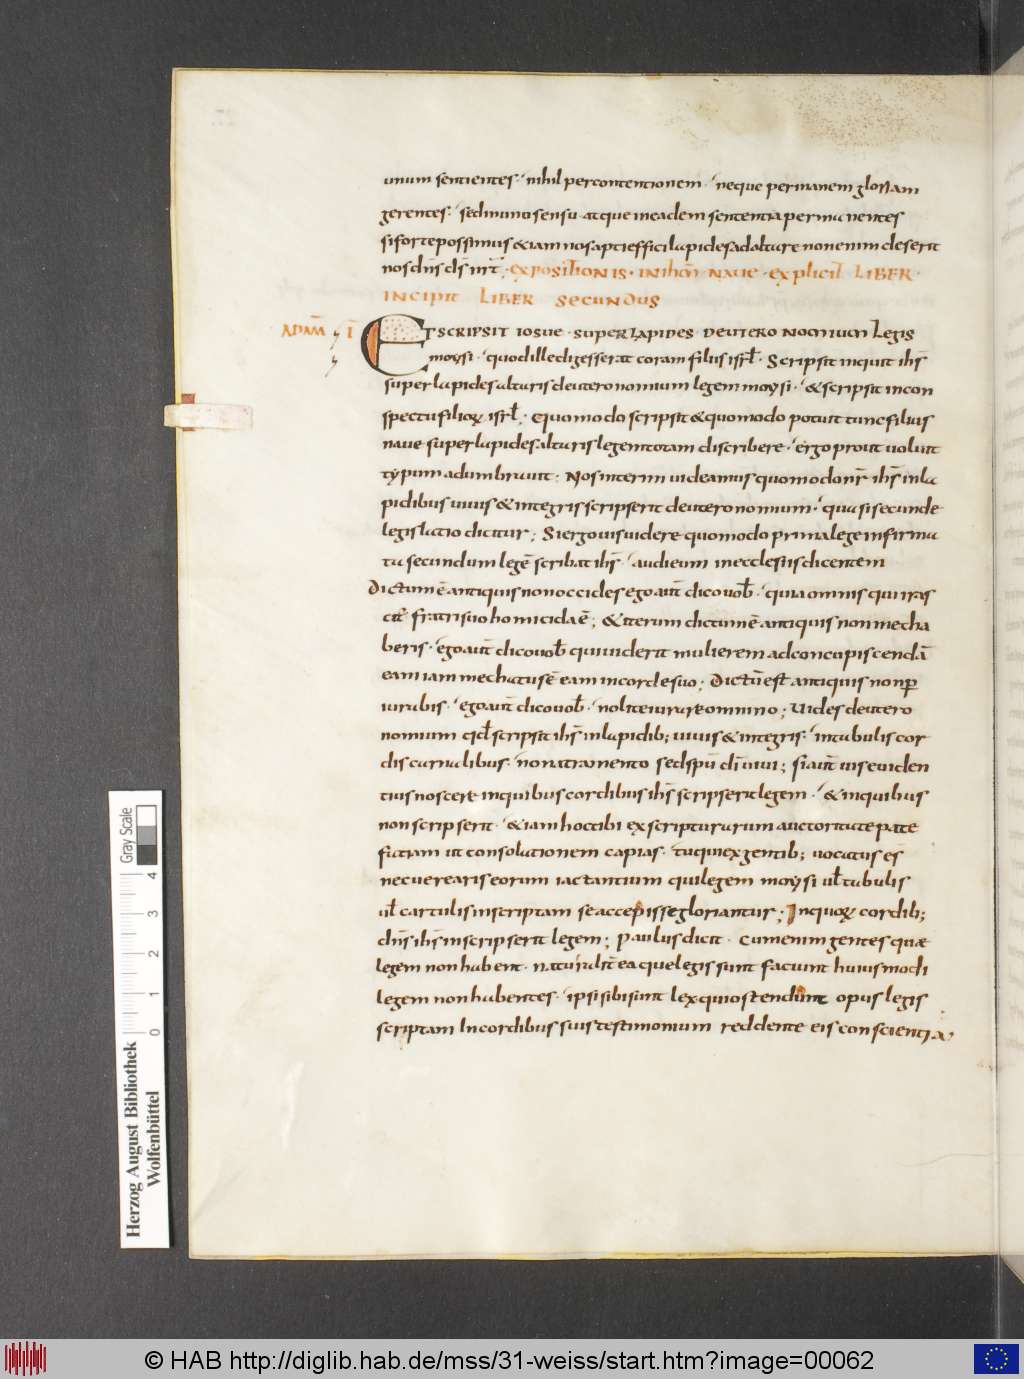 unum sentientes · nihil per contentionem · neque per inanem gloriam
gerentes · sed in uno sensu atque in eadem sententia permanentes
si forte possimus & iam nos apti effici lapides ad altare non enim deserit
nos dn̄s ds̄ nr̄ · expositionis · in ih̄m naue · explicit LIBER ·
INCIPIT LIBER SECUNDUS
ADAM̄ I
ET SCRIPSIT IOSUE · SUPER LAPIDES · DEUTERONOMIUM LEGIS
moysi · quod ille digesserat coram filiis isrl̄ · Scripsit inquit ih̄s
super lapides altaris deuteronomium legem moysi · & scripsit in con
spectu filioꝝ isrl̄; Quomodo scripsit & quomodo potuit tunc filius
naue super lapides altaris legem totam discribere · ergo prout uoluit
typum adumbrauit · Nos interim uideamus quomodo nr̄ ih̄s in la
pidibus uiuis & integris scripserit deuteronomium · quasi secunde
legislatio dicitur; Si ergo uis uidere quomodo prima lege infirma
ta secundum legē scribat ih̄s · audieum in ecclesiis dicentem
Dictum ē antiquis non occides ego aūt dico uob̄ · quia omnis qui iras
cit̄ fratri suo homicida ē; & iterum dictum ē antiquis non mecha
beris · ego aūt dico uob̄ qui uiderit mulierem ad concupiscendā
eam iam mechatus ē eam in corde suo; Dictū est antiquis non ꝑ
iurabis · ego aūt dico uob̄ · nolite iurare omnino; Uides deutero
nomium qd̄ scripsit ih̄s in lapidib; uiuis & integris · in tabulis cor
dis carnalibus · non atramento sed spū dī uiui; si aūt uis euiden
tius noscere in quibus cordibus ih̄s scripserit legem · & in quibus
non scripserit · & iam hoc tibi ex scripturarum auctoritate pate
faciam ut consolationem capias · tu qui ex gentib; uocatus es
nec uerearis eorum iactantium qui legem moysi ul̄ tabulis
ul̄ cartulis inscriptam se accepisse gloriantur; In quoꝝ cordib;
dn̄s ih̄s inscripserit legem; Paulus dicit · Cum enim gentes quæ
legem non habent · naturalit̄ ea que legis sunt faciunt huiusmodi
legem non habentes · ipsi sibi sunt lex qui ostendunt opus legis
scriptam In cordibus suis testimonium reddente eis conscientia
Gray Scale
4 3 2 1 0
Herzog August Bibliothek
Wolfenbüttel
© HAB http://diglib.hab.de/mss/31-weiss/start.htm?image=00062